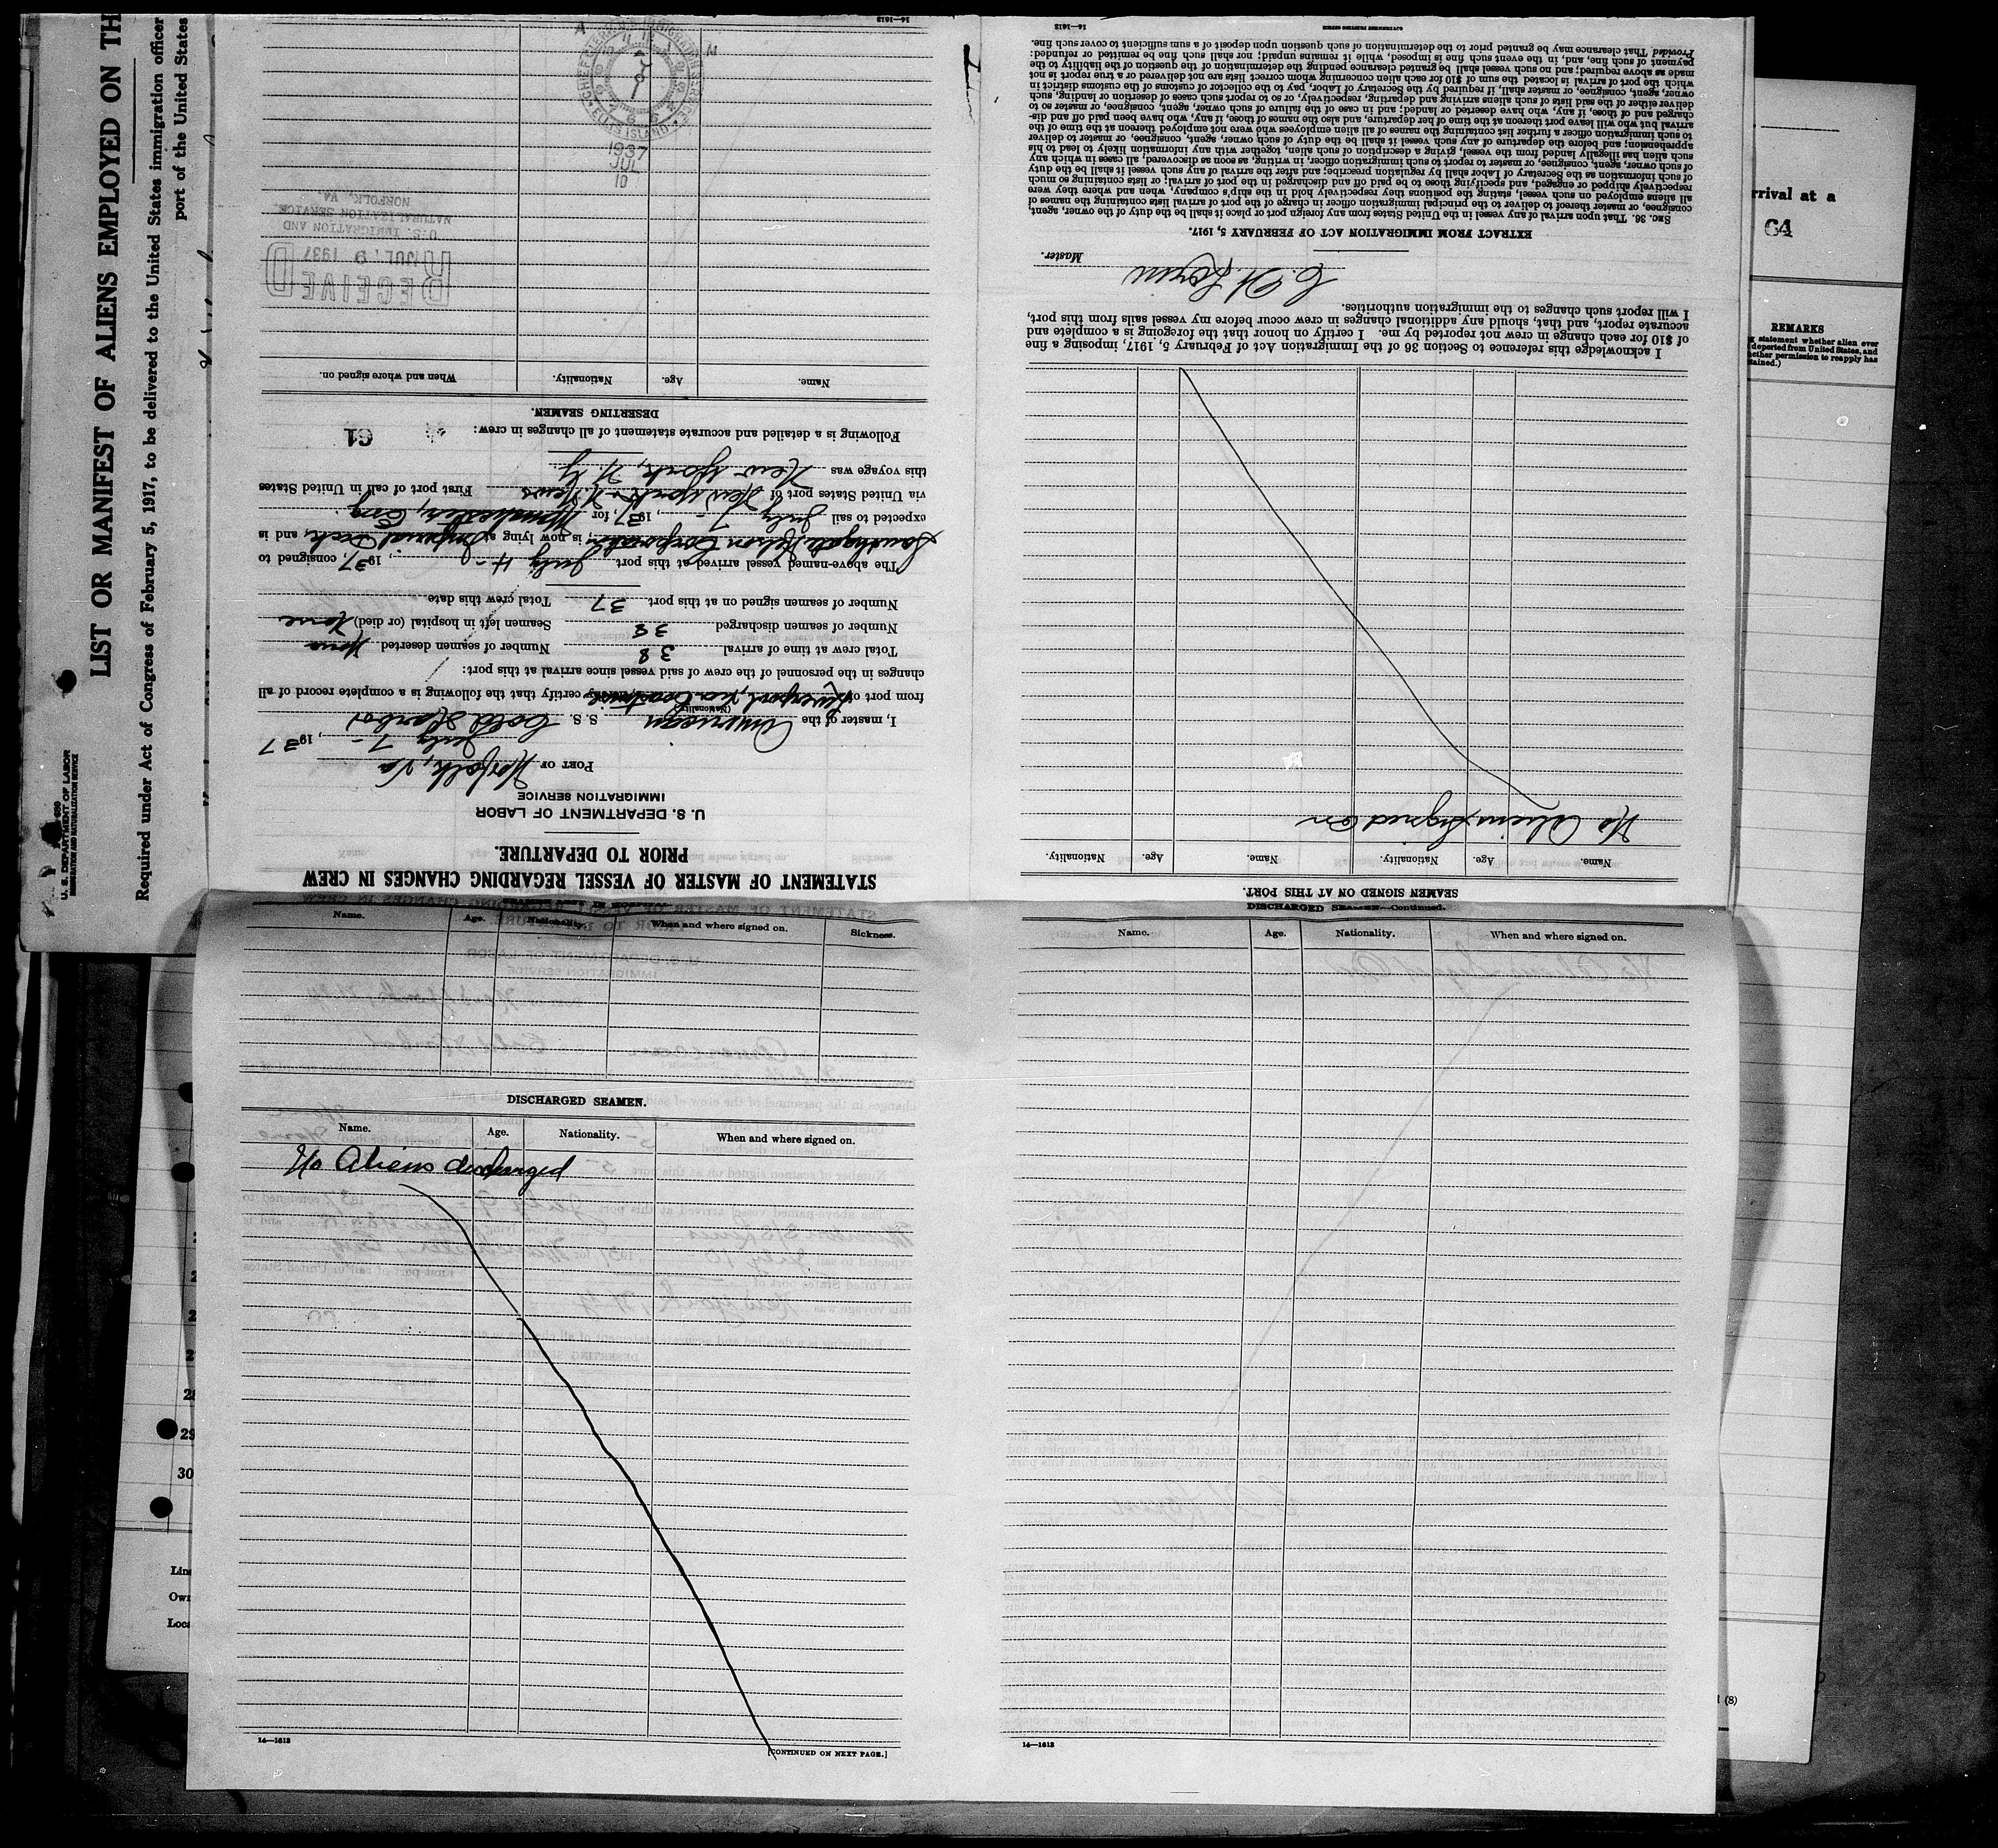 LIST OR MANIFEST OF ALIENS EMPLOYED ON TH
Required under Act of Congress of February 5, 1917, to be delivered to the United States immigration officer
port of the United States
U. S. DEPARTMENT OF LABOR
IMMIGRATION AND NATURALIZATION SERVICE
STATEMENT OF MASTER OF VESSEL REGARDING CHANGES IN CREW
PRIOR TO DEPARTURE.
U. S. DEPARTMENT OF LABOR
IMMIGRATION SERVICE
PORT OF Norfolk, Va
July 7-, 1937
I, master of the American S. S. Cold Harbor
(Nationality)
from port of Liverpool, via certify that the following is a complete record of all
changes in the personnel of the crew of said vessel since arrival at this port:
Total crew at time of arrival 38 Number of seamen deserted None
Number of seamen discharged 38 Seamen left in hospital (or died) None
Number of seamen signed on at this port 37 Total crew this date
The above-named vessel arrived at this port July 4-, 1937, consigned to
Southgate Nelson Corporation, is now lying at Imperial Dock, and is
expected to sail July 7-, 1937, for Manchester, Eng
via United States port of New York & N. News First port of call in United States
this voyage was New York, N.Y
Following is a detailed and accurate statement of all changes in crew:
61
DESERTING SEAMEN.
Name. Age. Nationality. When and where signed on.
RECEIVED
JUL 9 1937
U.S. IMMIGRATION AND
NATURALIZATION SERVICE
NORFOLK, VA.
1937
JUL
10
ELLIS ISLAND
16—1613
SEAMEN SIGNED ON AT THIS PORT.
Name. Age. Nationality. Name. Age. Nationality.
No Aliens Signed On
I acknowledge this reference to Section 36 of the Immigration Act of February 5, 1917, imposing a fine
of $10 for each change in crew not reported by me. I certify on honor that the foregoing is a complete and
accurate report, and that, should any additional changes in crew occur before my vessel sails from this port,
I will report such changes to the immigration authorities.
Master.
EXTRACT FROM IMMIGRATION ACT OF FEBRUARY 5, 1917.
SEC. 36. That upon arrival of any vessel in the United States from any foreign port or place it shall be the duty of the owner, agent,
consignee, or master thereof to deliver to the principal immigration officer in charge of the port of arrival lists containing the names of
all aliens employed on such vessel, stating the positions they respectively hold in the ship's company, when and where they were
respectively shipped or engaged, and specifying those to be paid off and discharged in the port of arrival; or lists containing so much
of such information as the Secretary of Labor shall by regulation prescribe; and after the arrival of any such vessel it shall be the duty
of such owner, agent, consignee, or master to report to such immigration officer, in writing, as soon as discovered, all cases in which any
such alien has illegally landed from the vessel, giving a description of such alien, together with any information likely to lead to his
apprehension; and before the departure of any such vessel it shall be the duty of such owner, agent, consignee, or master to deliver
to such immigration officer a further list containing the names of all alien employees who were not employed thereon at the time of the
arrival but who will leave port thereon at the time of her departure, and also the names of those, if any, who have been paid off and dis-
charged and of those, if any, who have deserted or landed; and in case of the failure of such owner, agent, consignee, or master so to
deliver either of the said lists of such aliens arriving and departing, respectively, or so to report such cases of desertion or landing, such
owner, agent, consignee, or master, shall, if required by the Secretary of Labor, pay to the collector of customs of the customs district in
which the port of arrival is located the sum of $10 for each alien concerning whom correct lists are not delivered or a true report is not
made as above required; and no such vessel shall be granted clearance pending the determination of the question of the liability to the
payment of such fine, and, in the event such fine is imposed, while it remains unpaid; nor shall such fine be remitted or refunded:
Provided, That clearance may be granted prior to the determination of such question upon deposit of a sum sufficient to cover such fine.
16—1613
rrival at a
64
REMARKS
Name. Age. Nationality. When and where signed on. Sickness.
DISCHARGED SEAMEN.
Name. Age. Nationality. When and where signed on.
No Aliens discharged
14—1613
[CONTINUED ON NEXT PAGE.]
DISCHARGED SEAMEN—Continued.
Name. Age. Nationality. When and where signed on.
14—1613
29
30
(8)